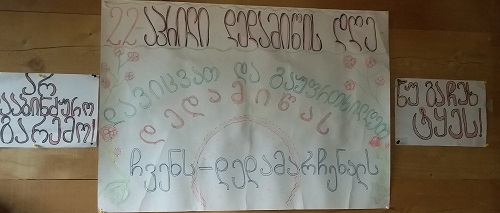 22 აპრილი დედამიწის დღე
დავიცვათ და გავუფრთხილდეთ
დედამიწას
ჩვენს-დედამარჩენალს
არ
დააბინძურო
გარემო!
ნუ გაჩეხ
ტყეს!